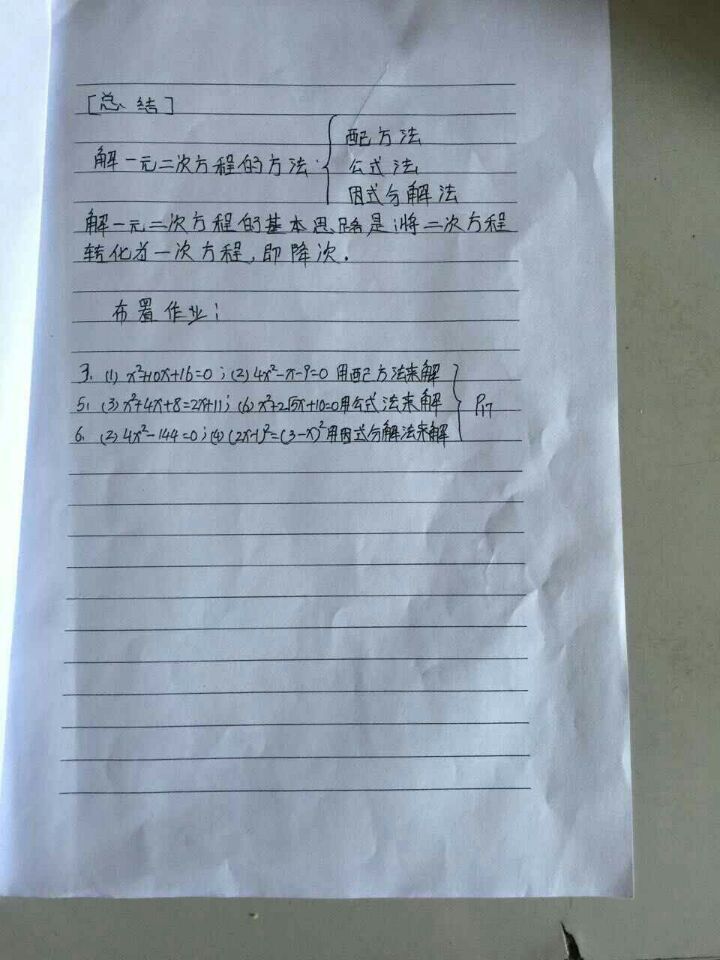 [总结]
解一元二次方程的方法:{配方法
公式法
因式分解法
解一元二次方程的基本思路是:将二次方程
转化为一次方程,即降次.
布置作业:
3. (1) x²+10x+16=0; (2) 4x²-x-9=0 用配方法来解
5. (3) x²+4x+8=2x+11; (6) x²+2√5x+10=0用公式法来解
6. (2) 4x²-144=0; (4) (2x-1)²=(3-x)²用因式分解法来解
} P17